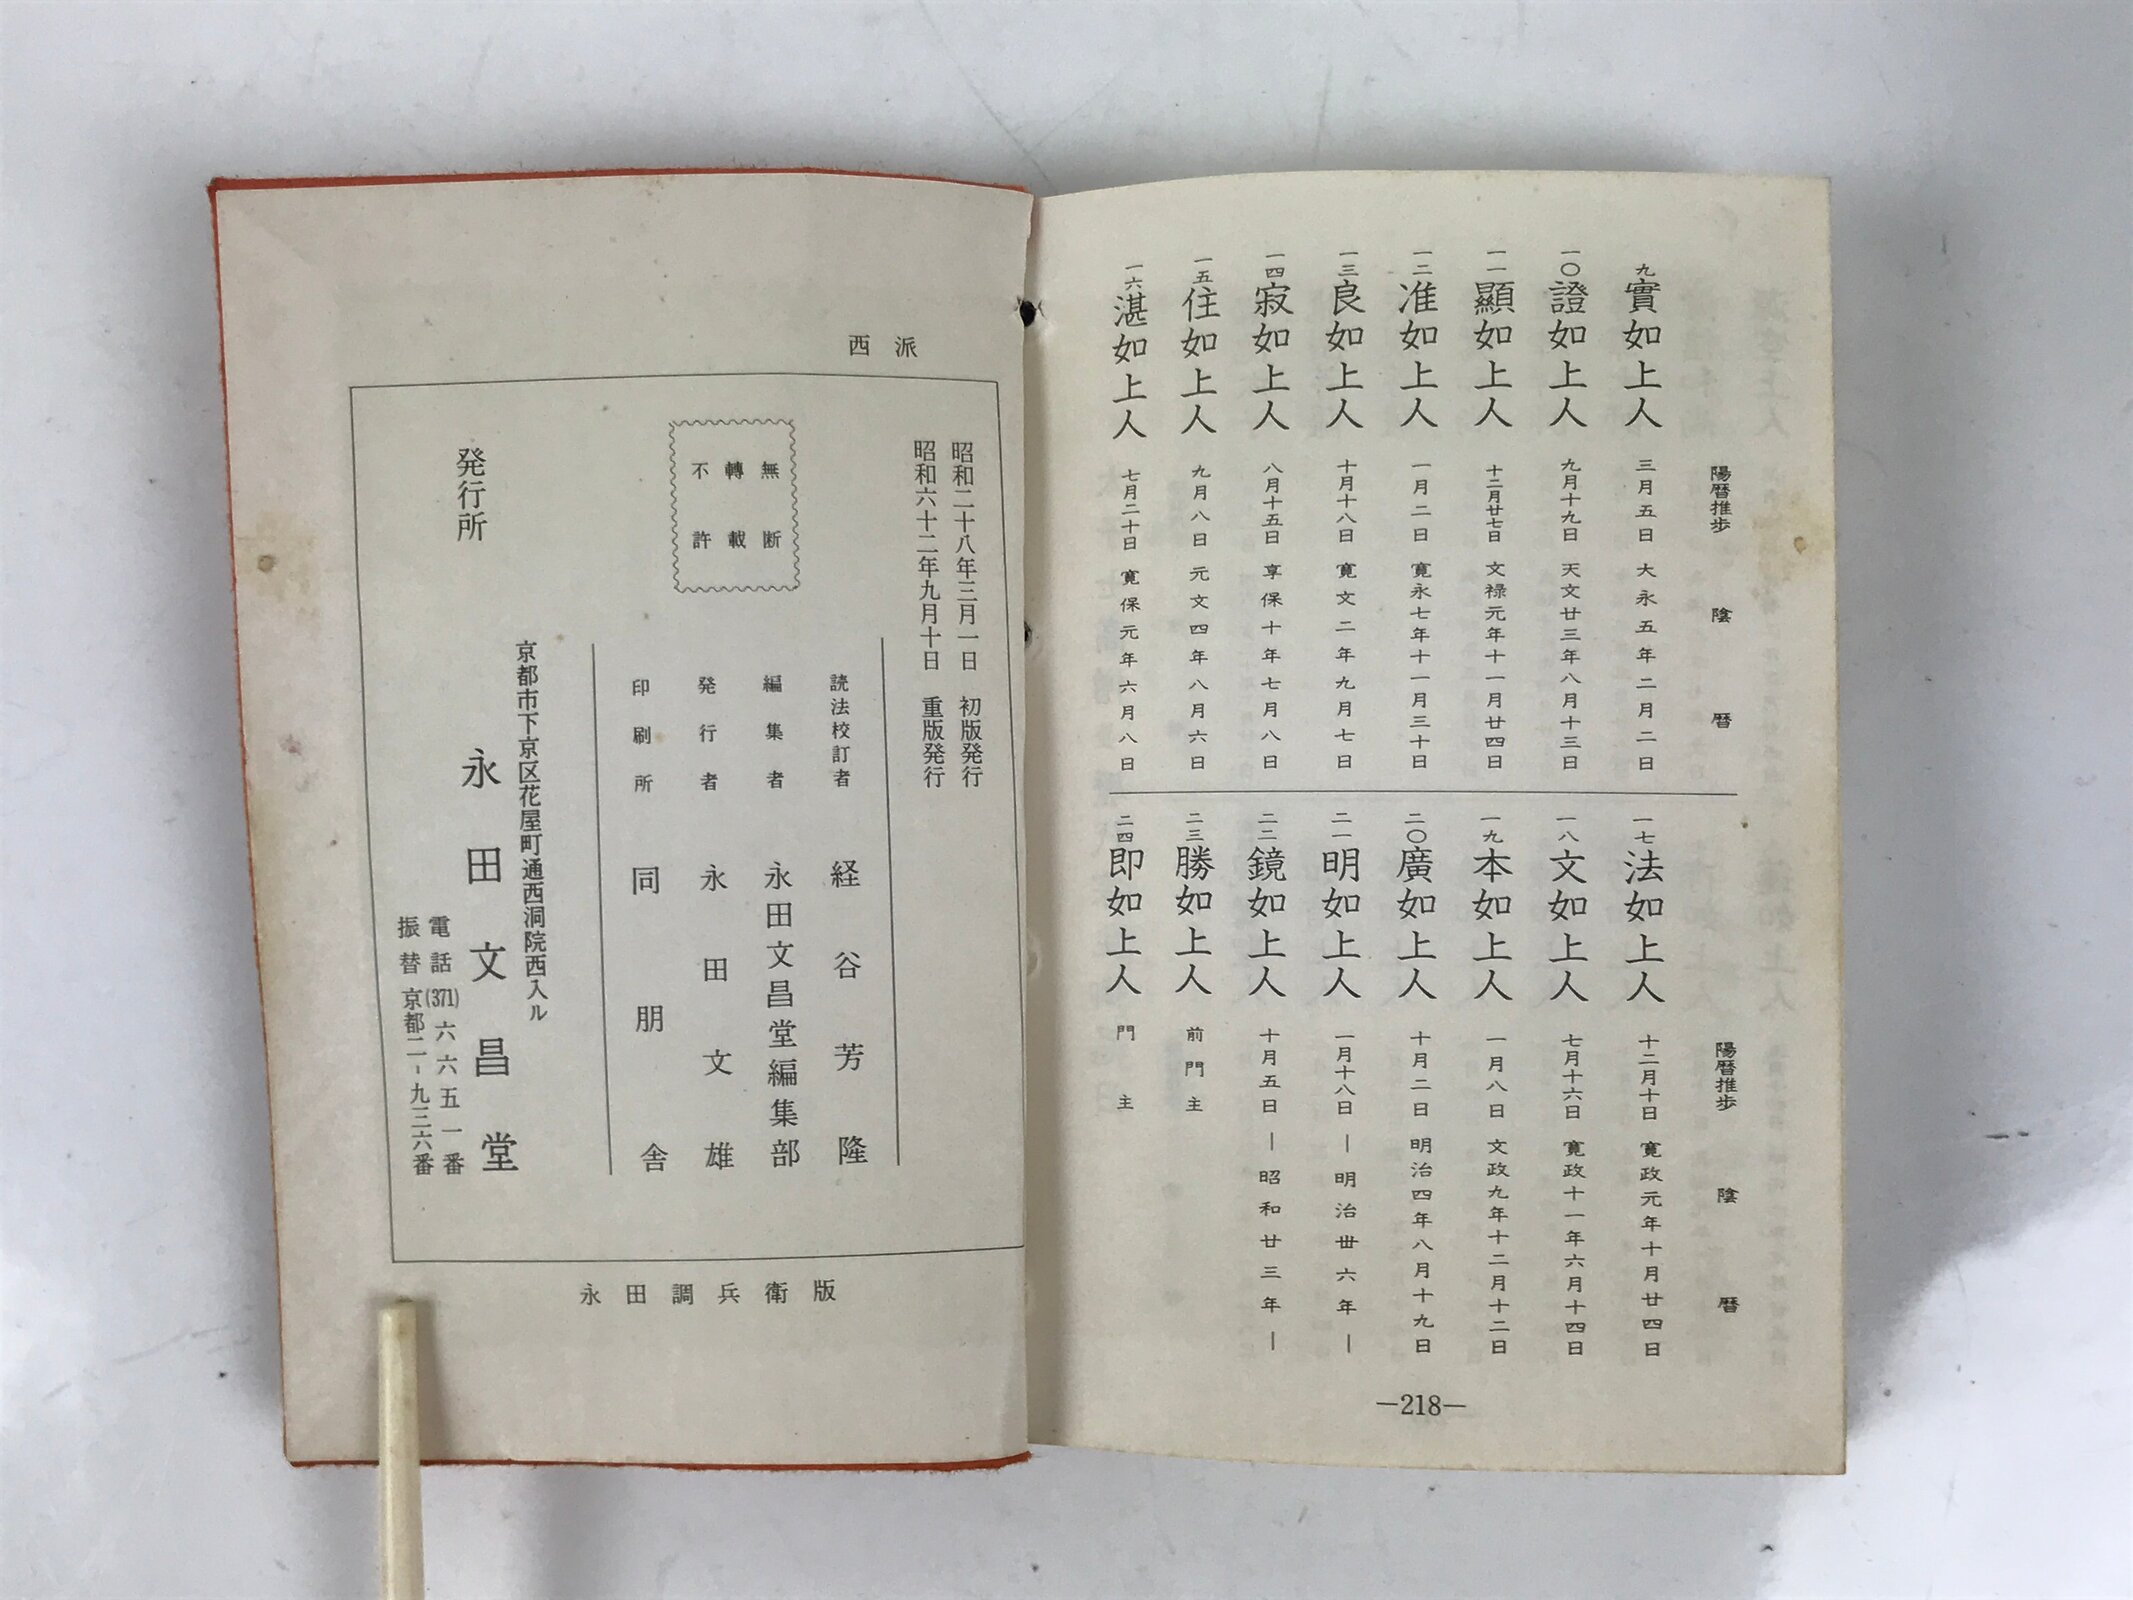 陽暦推歩 陰暦
九 實如上人 三月五日 大永五年二月二日
一〇 證如上人 九月十九日 天文廿三年八月十三日
一一 顯如上人 十二月廿七日 文禄元年十一月廿四日
一二 准如上人 一月二日 寛永七年十一月三十日
一三 良如上人 十月十八日 寛文二年九月七日
一四 寂如上人 八月十五日 享保十年七月八日
一五 住如上人 九月八日 元文四年八月六日
一六 湛如上人 七月二十日 寛保元年六月八日
陽暦推歩 陰暦
一七 法如上人 十二月十日 寛政元年十月廿四日
一八 文如上人 七月十六日 寛政十一年六月十四日
一九 本如上人 一月八日 文政九年十二月十二日
二〇 廣如上人 十月二日 明治四年八月十九日
二一 明如上人 一月十八日 ―明治丗六年―
二二 鏡如上人 十月五日 ―昭和廿三年―
二三 勝如上人 前門主
二四 即如上人 門主
―218―
西派
昭和二十八年三月一日 初版発行
昭和六十二年九月十日 重版発行
無断
轉載
不許
読法校訂者 経谷芳隆
編集者 永田文昌堂編集部
発行者 永田文雄
印刷所 同朋舎
京都市下京区花屋町通西洞院西入ル
発行所 永田文昌堂
電話(371)六六五一番
振替京都二-九三六番
永田調兵衛版